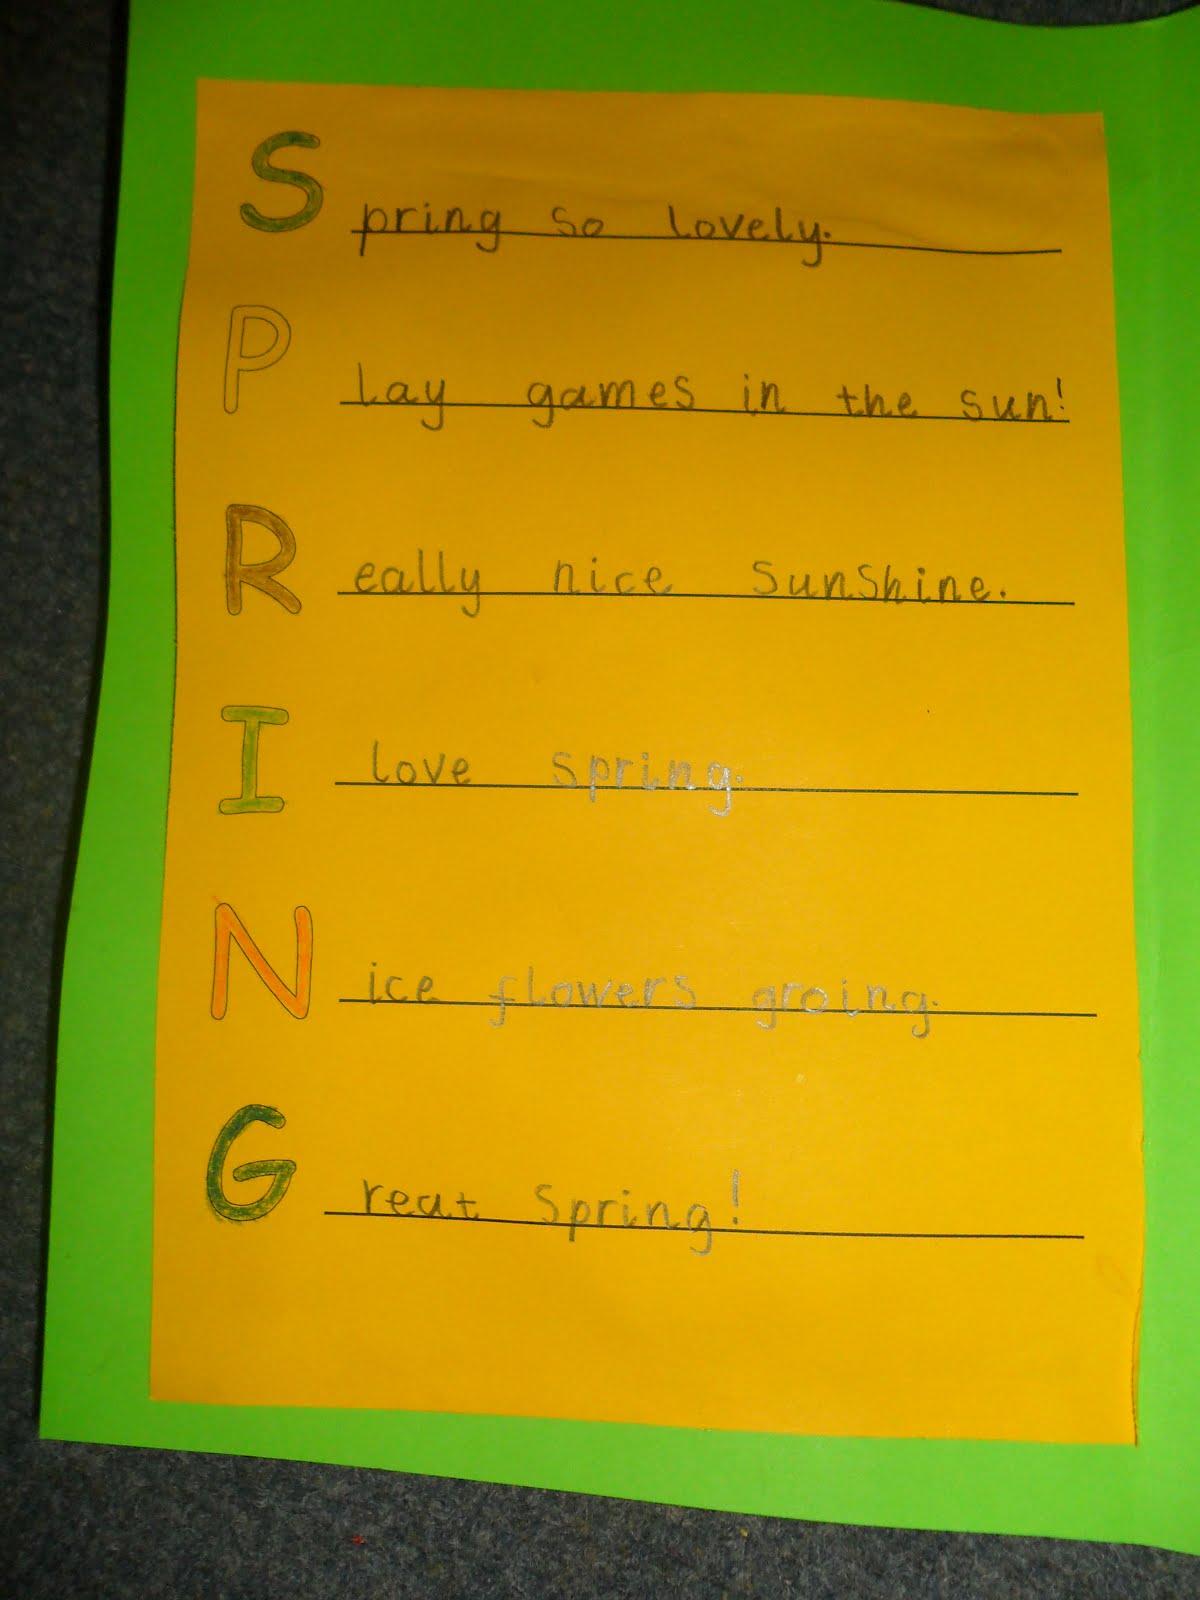 Spring so lovely.
Play games in the sun!
Really nice sunshine.
I love spring.
Nice flowers groing.
Great spring!